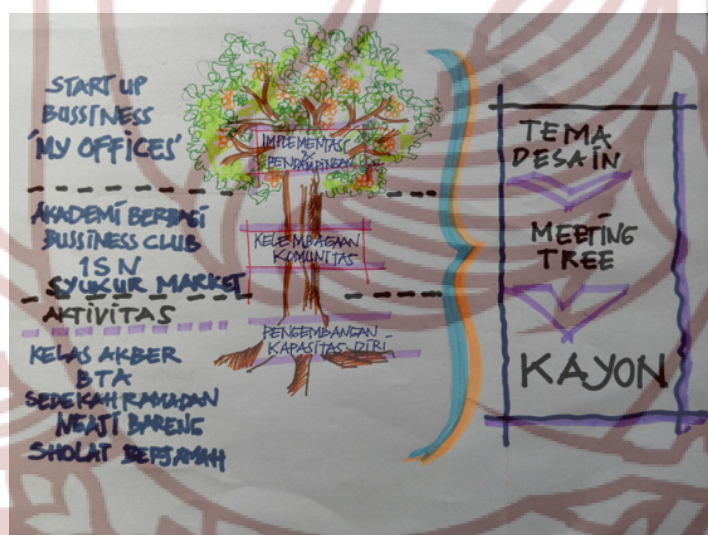 START UP
BUSSINESS
'MY OFFICES'
AKADEMI BERBAGI
BUSSINESS CLUB
1SN
SYUKUR MARKET
AKTIVITAS
KELAS AKBER
BTA
SEDEKAH RAMADAN
NGAJI BARENG
SHOLAT BERJAMAH
IMPLEMENTASI
&
PENDAMPINGAN
KELEMBAGAAN
KOMUNITAS
PENGEMBANGAN
KAPASITAS DIRI
TEMA
DESAIN
MEETING
TREE
KAYON